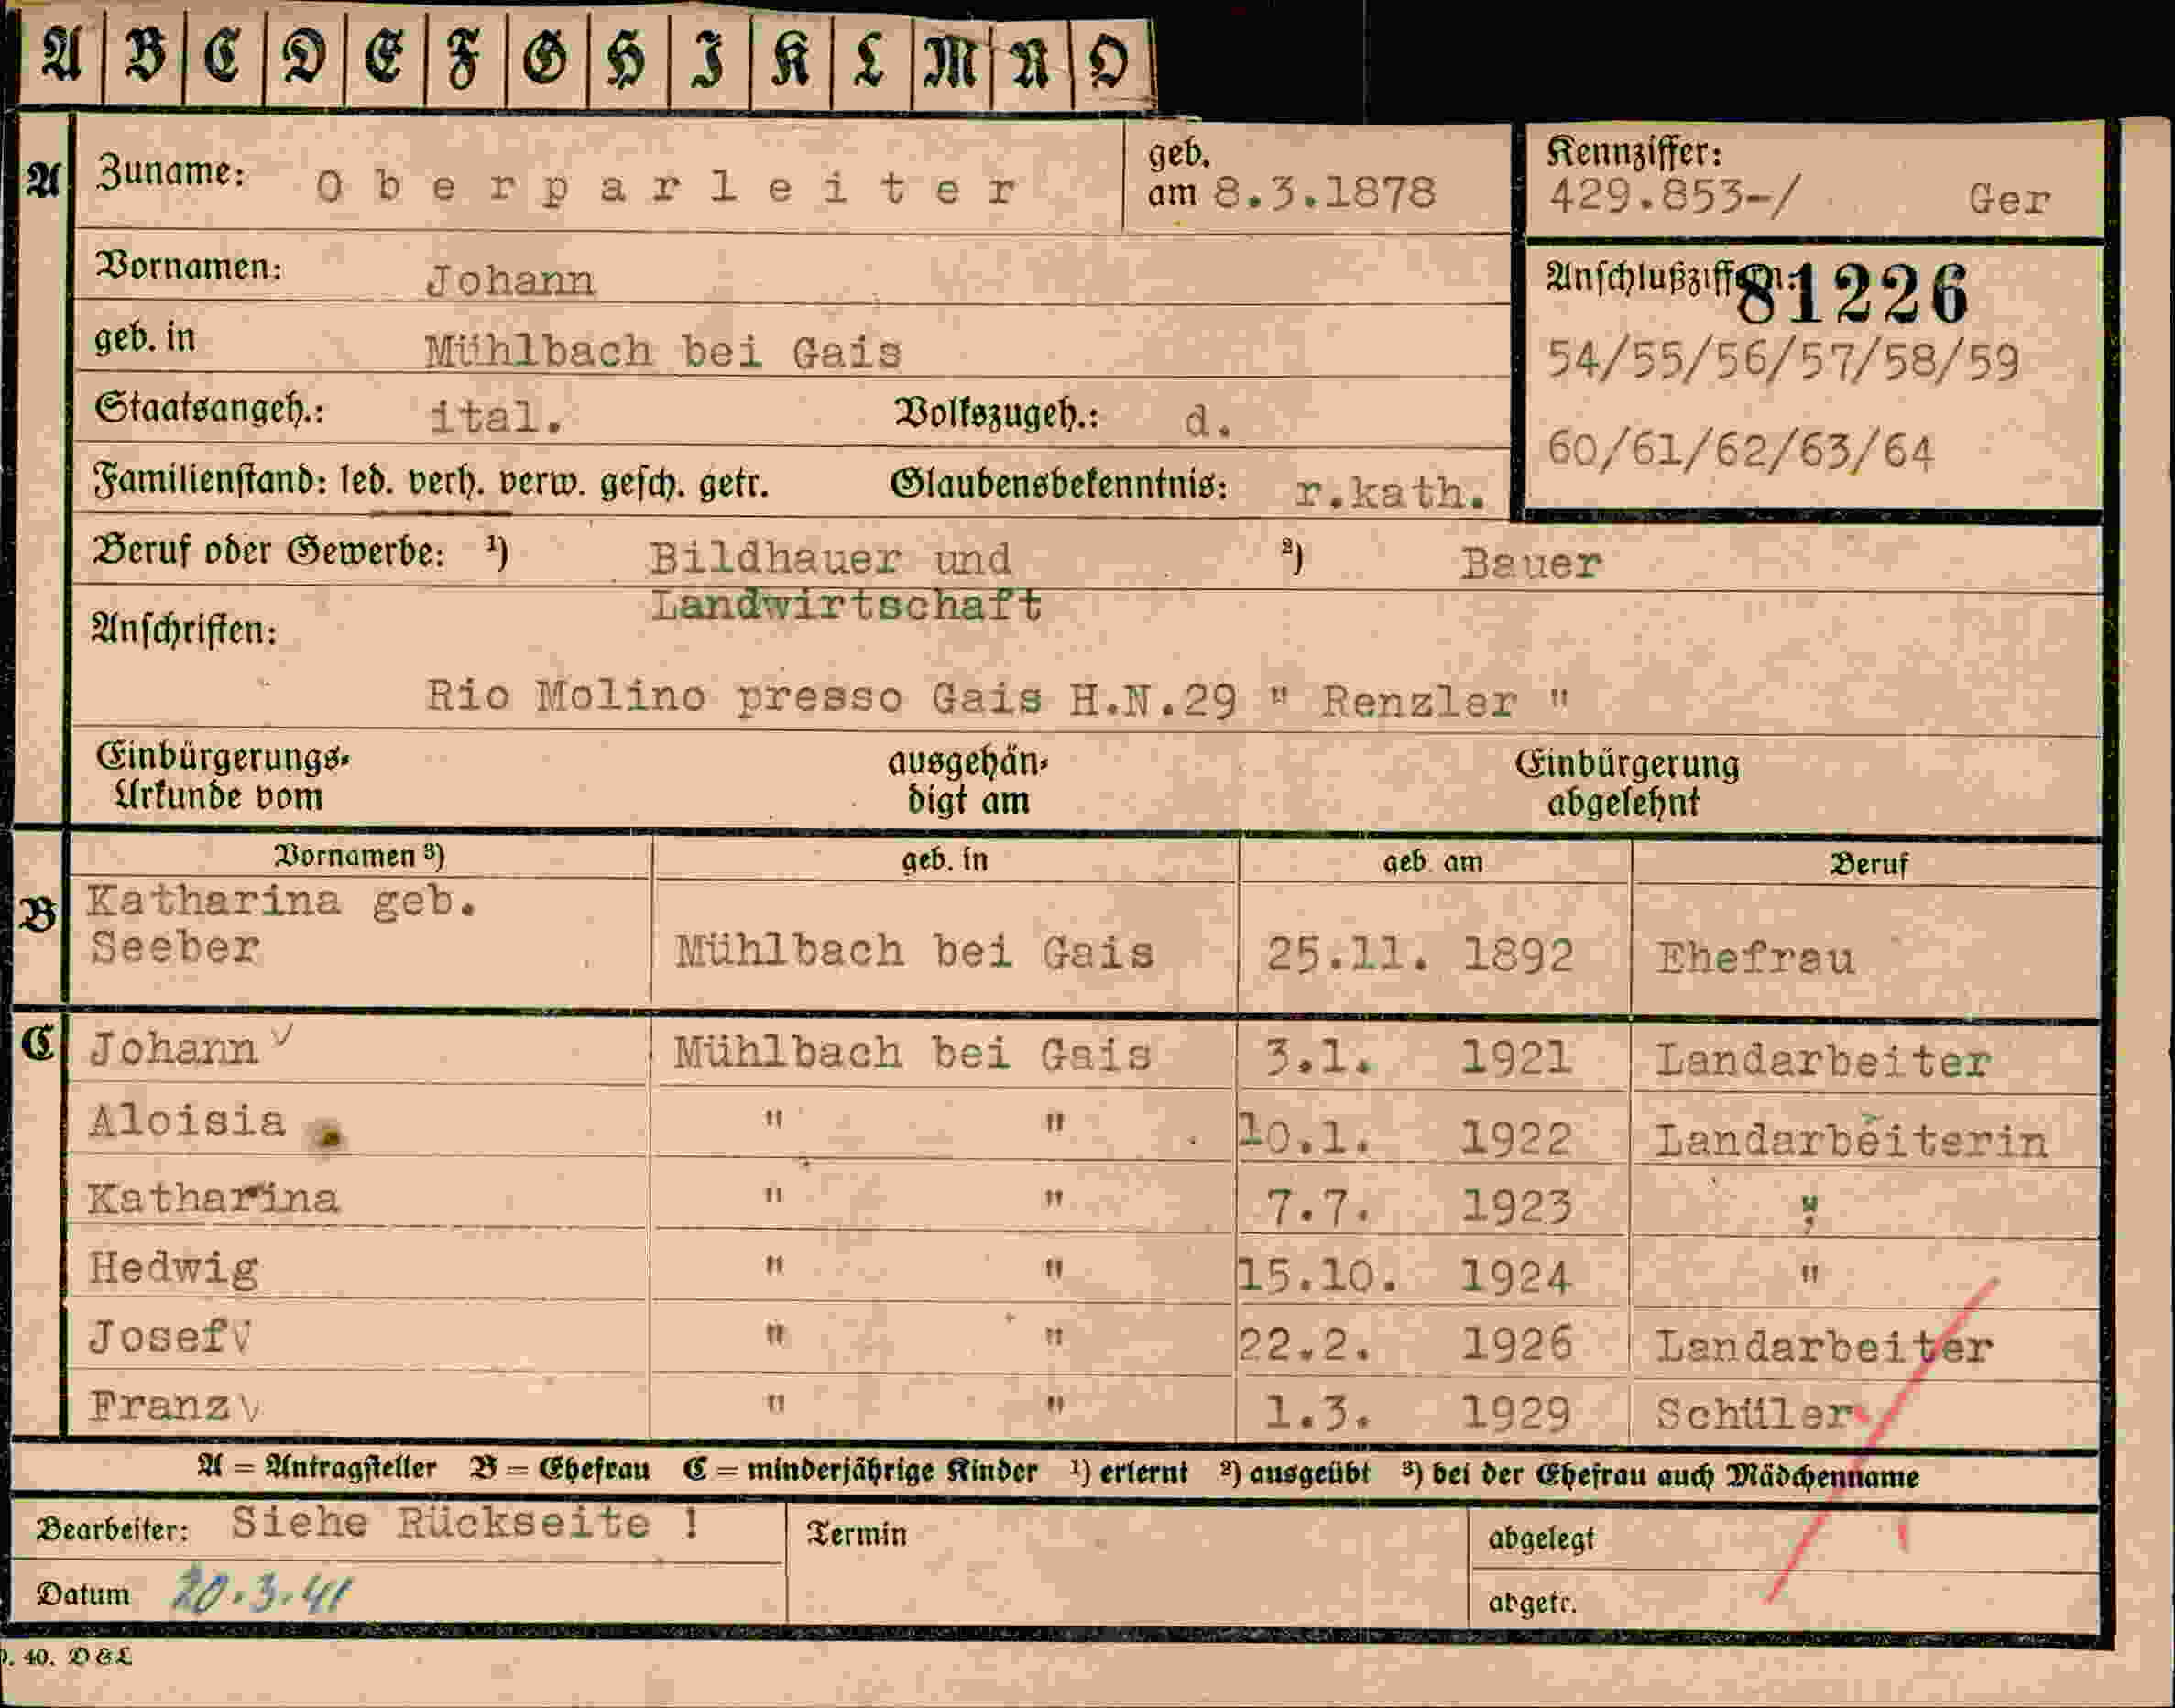 A B C D E F G H I K L M N O
A Zuname: O b e r p a r l e i t e r geb. am 8.3.1878
Kennziffer: 429.853-/ Ger
Vornamen: Johann
Anschlußziffern: 81226
geb. in Mühlbach bei Gais
54/55/56/57/58/59
Staatsangeh.: ital. Volkszugeh.: d.
60/61/62/63/64
Familienstand: led. verh. verw. gesch. getr. Glaubensbekenntnis: r.kath.
Beruf oder Gewerbe: ¹) Bildhauer und ²) Bauer
Landwirtschaft
Anschriften:
Rio Molino presso Gais H.N.29 " Renzler "
Einbürgerungs- ausgehän- Einbürgerung
Urkunde vom digt am abgelehnt
Vornamen ³) geb. in geb. am Beruf
B Katharina geb.
Seeber Mühlbach bei Gais 25.11. 1892 Ehefrau
C Johann √ Mühlbach bei Gais 3.1. 1921 Landarbeiter
Aloisia " " 10.1. 1922 Landarbeiterin
Katharina " " 7.7. 1923 "
Hedwig " " 15.10. 1924 "
Josef √ " " 22.2. 1926 Landarbeiter
Franz √ " " 1.3. 1929 Schüler
A = Antragsteller B = Ehefrau C = minderjährige Kinder ¹) erlernt ²) ausgeübt ³) bei der Ehefrau auch Mädchenname
Bearbeiter: Siehe Rückseite ! Termin abgelegt
Datum 20.3.41 abgetr.
40. D & L